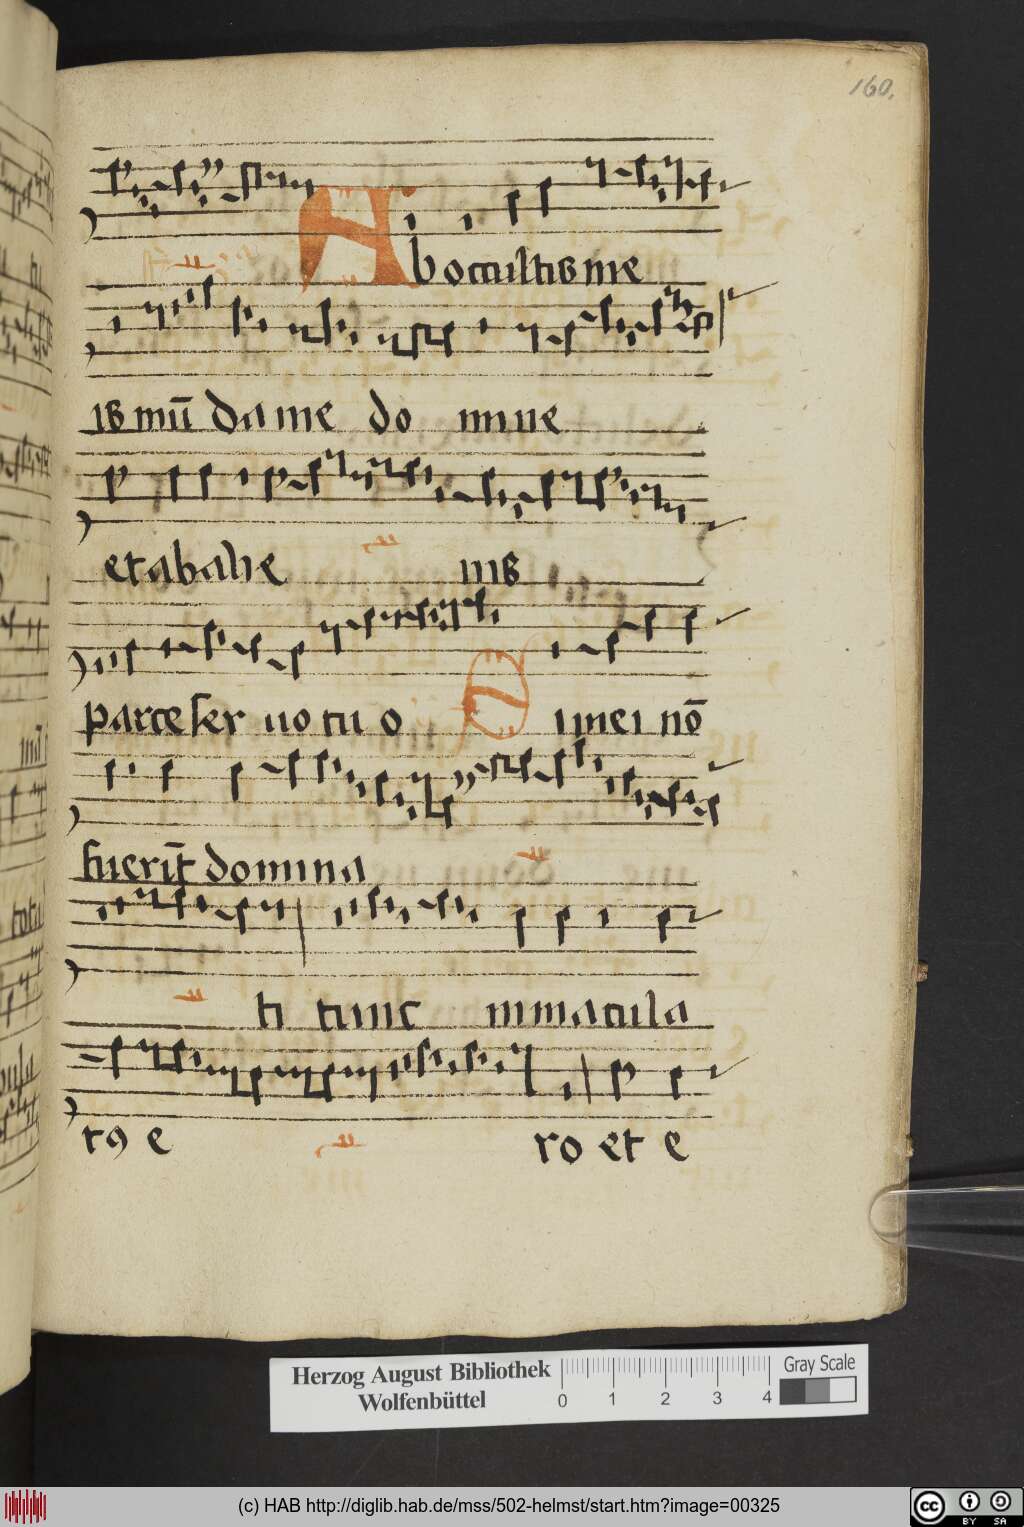 160.
Ab occultis me
is mū da me do mine
et ab alie nis
parce ser uo tu o Si mei nō
fuerīt domina
ti tunc immacula
tꝯ e ro et e
Herzog August Bibliothek
Wolfenbüttel
0 1 2 3 4
Gray Scale
(c) HAB http://diglib.hab.de/mss/502-helmst/start.htm?image=00325
cc BY SA